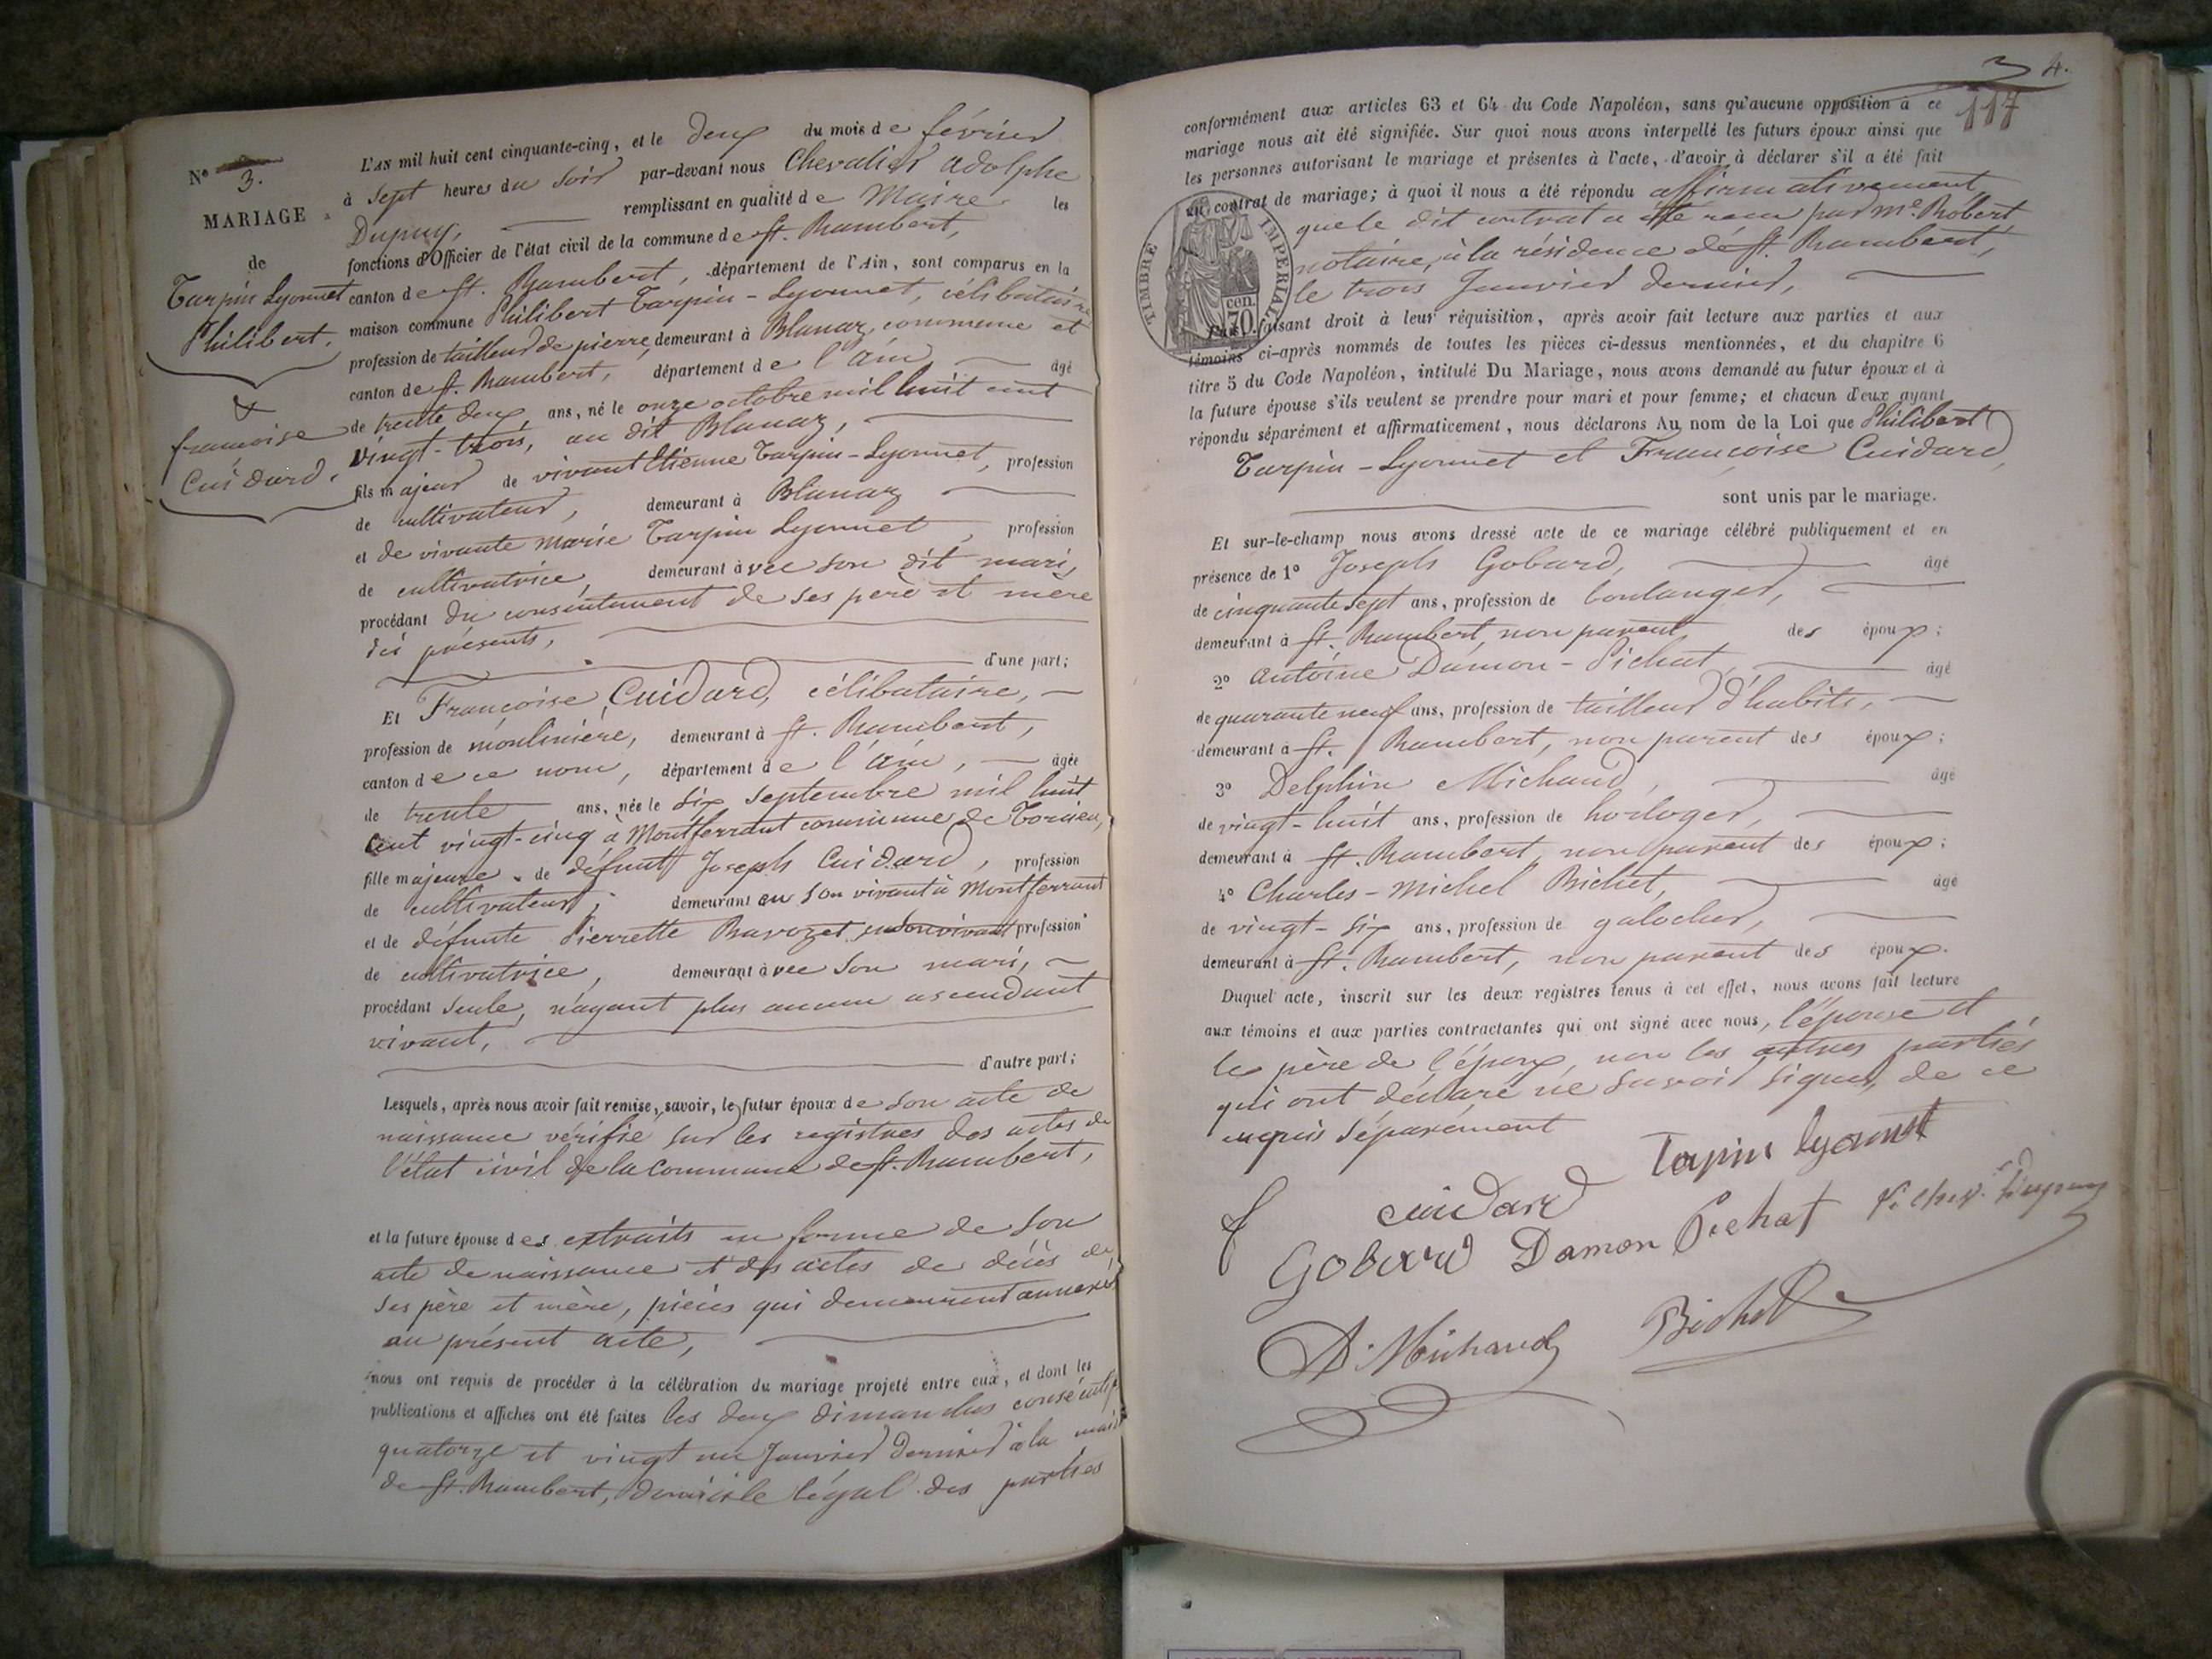 No 3.
MARIAGE
de
Tarpin Lyonnet
Philibert.
&
françoise
Cuidard.
L'AN mil huit cent cinquante-cinq, et le deux du mois de février
à Sept heures du soir par-devant nous Chevalier Adolphe
Dupuy, remplissant en qualité de Maire les
fonctions d'Officier de l'état civil de la commune de St. Rambert,
canton de St. Rambert, département de l'Ain, sont comparus en la
maison commune Philibert Tarpin-Lyonnet, célibataire
profession de tailleur de pierre, demeurant à Blanaz, commune et
canton de St. Rambert, département de l'Ain, âgé
de trente deux ans, né le onze octobre mil huit cent
vingt-trois, au dit Blanaz,
fils majeur de vivant Etienne Tarpin-Lyonnet, profession
de cultivateur, demeurant à Blanaz
et de vivante Marie Tarpin Lyonnet, profession
de cultivatrice, demeurant avec son dit mari,
procédant du consentement de ses père et mère
ici présents,
d'une part;
Et Françoise Cuidard, célibataire,
profession de moulinière, demeurant à St. Rambert,
canton de ce nom, département de l'Ain, âgée
de trente ans, née le six septembre mil huit
cent vingt-cinq à Montferrant commune de Torcieu,
fille majeure de défunt Joseph Cuidard, profession
de cultivateur, demeurant en son vivant à Montferrant
et de défunte Pierrette Ravozet en son vivant profession
de cultivatrice, demeurant avec son mari,
procédant seule, n'ayant plus aucun ascendant
vivant,
d'autre part;
Lesquels, après nous avoir fait remise, savoir, le futur époux de son acte de
naissance vérifié sur les registres des actes de
l'état civil de la commune de St. Rambert,
et la future épouse des extraits en forme de son
acte de naissance et des actes de décès de
ses père et mère, pièces qui demeurent annexés
au présent acte,
nous ont requis de procéder à la célébration du mariage projeté entre eux, et dont les
publications et affiches ont été faites les deux dimanches consécutifs
quatorze et vingt un Janvier dernier à la mairie
de St. Rambert, domicile légal des parties
4.
117
conformément aux articles 63 et 64 du Code Napoléon, sans qu'aucune opposition à ce
mariage nous ait été signifiée. Sur quoi nous avons interpellé les futurs époux ainsi que
les personnes autorisant le mariage et présentes à l'acte, d'avoir à déclarer s'il a été fait
un contrat de mariage; à quoi il nous a été répondu affirmativement,
que le dit contrat a été reçu par Me. Robert
notaire, à la résidence de St. Rambert,
le trois Janvier dernier,
TIMBRE IMPERIAL
70 cen.
Puis, faisant droit à leur réquisition, après avoir fait lecture aux parties et aux
témoins ci-après nommés de toutes les pièces ci-dessus mentionnées, et du chapitre 6
titre 5 du Code Napoléon, intitulé Du Mariage, nous avons demandé au futur époux et à
la future épouse s'ils veulent se prendre pour mari et pour femme; et chacun d'eux ayant
répondu séparément et affirmativement, nous déclarons Au nom de la Loi que Philibert
Tarpin-Lyonnet et Françoise Cuidard,
sont unis par le mariage.
Et sur-le-champ nous avons dressé acte de ce mariage célébré publiquement et en
présence de 1° Joseph Gobard, âgé
de cinquante sept ans, profession de boulanger,
demeurant à St. Rambert, non parent des époux;
2° Antoine Damon-Pichat, âgé
de quarante neuf ans, profession de tailleur d'habits,
demeurant à St. Rambert, non parent des époux;
3° Delphin Michaud, âgé
de vingt-huit ans, profession de horloger,
demeurant à St. Rambert, non parent des époux;
4° Charles-Michel Bichet, âgé
de vingt-six ans, profession de galocher,
demeurant à St. Rambert, non parent des époux.
Duquel acte, inscrit sur les deux registres tenus à cet effet, nous avons fait lecture
aux témoins et aux parties contractantes qui ont signé avec nous, l'épouse et
le père de l'époux, non les autres parties
qui ont déclaré ne savoir signer, de ce
requis séparément
Tarpin lyonnet
f cuidard
Gobard Damon Pichat
D. Michaud Bichet